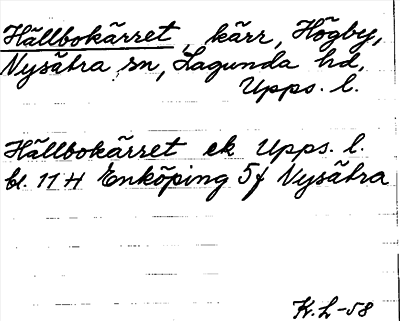 Hällbokärret, kärr, Högby,
Nysätra sn, Lagunda hd,
Upps. l.
Hällbokärret ek Upps. l.
bl. 11 H Enköping 5f Nysätra
K.L-58